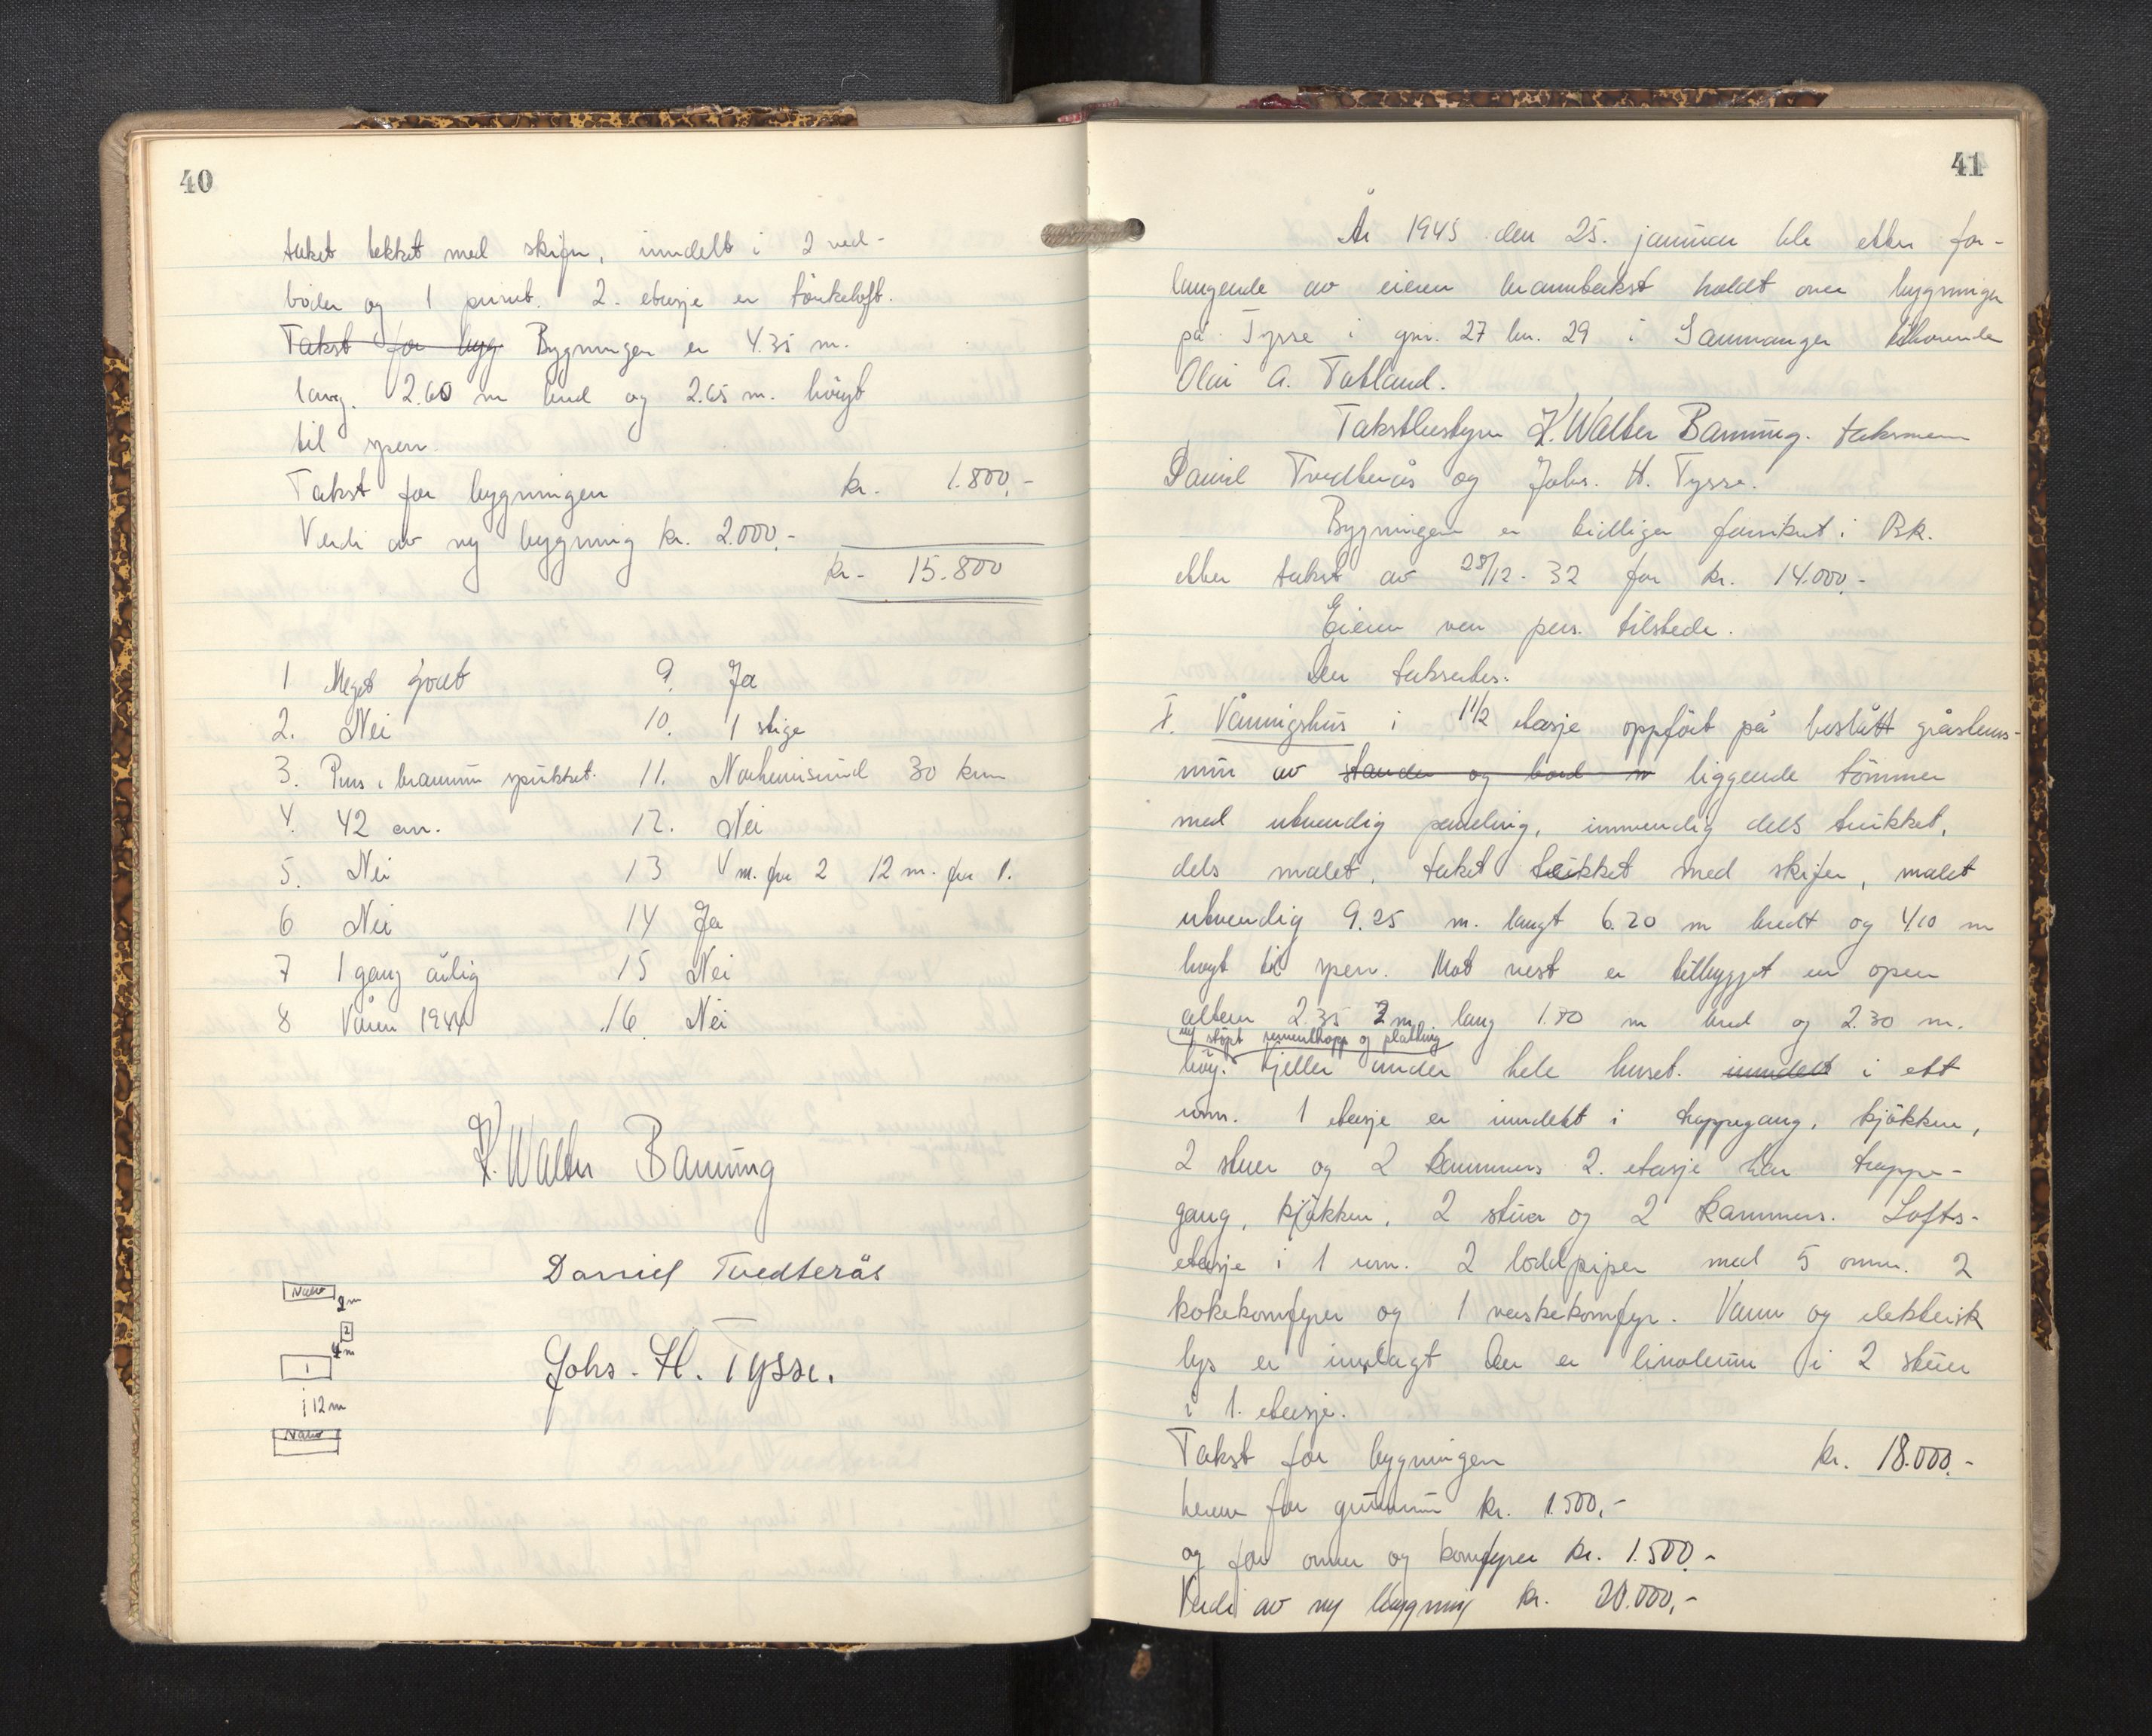 40
taket tekket med skifer, inndelt i 2 ved-
boder og 1 privet. 2. etasje er törkeloft.
Takst for byg Bygningen er 4.35 m.
lang. 2.60 m bred og 2.65 m. höigt
til sperr.
Takst for bygningen kr. 1.800,-
Verdi av ny bygning kr. 2.000,-
kr. 15.800
1 Meget godt 9. Ja
2. Nei 10. 1 stige
3. Puss i brannm spikket. 11. Norheimsund 30 km
4. 42 cm. 12. Nei
5. Nei 13 4 m. fra 2 12 m. fra 1.
6 Nei 14 Ja
7 1 gang årlig 15 Nei
8 Våren 1944 16. Nei
K. Walter Banning
Daniel Tvedterås
Johs. H. Tysse.
Nabo
2 m
2
4 m
1
12 m
Nabo
41
År 1945 den 25. januar ble etter for-
langende av eieren branntakst holdt over bygninger
på Tysse i gnr. 27 bn. 29 i Samnanger tilhørende
Olai A. Tatland.
Takstbestyrer K. Walter Banning. taksmenn
Daniel Tvedterås og Johs. H. Tysse.
Bygningen er tidligere forsikret i Bk.
etter takst av 28/12. 32 for kr. 14.000,-
Eieren var pers. tilstede.
Der takseredes:
I. Våningshus i 1 1/2 etasje oppfört på beslått gråstens-
mur av stender og bord m liggende tömmer
med utvendig paneling, innvendig dels trukket,
dels malet, taket tekket med skifer, malet
utvendig 9.25 m. langt 6.20 m bredt og 4.10 m
høyt til sperr. Mot vest er tilbygget en open
altan 2.35 m. lang 1.80 m bred og 2.30 m.
ny støpt sementtrapp og platting
høy. Kjeller under hele huset. inndelt i ett
rum. 1 etasje er inndelt i trappegang, kjökken,
2 stuer og 2 kammers 2. etasje har trappe-
gang, kjökken, 2 stuer og 2 kammers. Lofts-
etasje i 1 rum. 2 loddpiper med 5 ovner. 2
kokekomfyrer og 1 vaskekomfyr. Vann og elektrisk
lys er innlagt Der er linoleum i 2 stuer
i 1. etasje.
Takst for bygningen kr. 18.000,-
herav for grunnmur kr. 1.500,-
og for ovner og komfyrer kr. 1.500,-
Verdi av ny bygning kr. 20.000,-